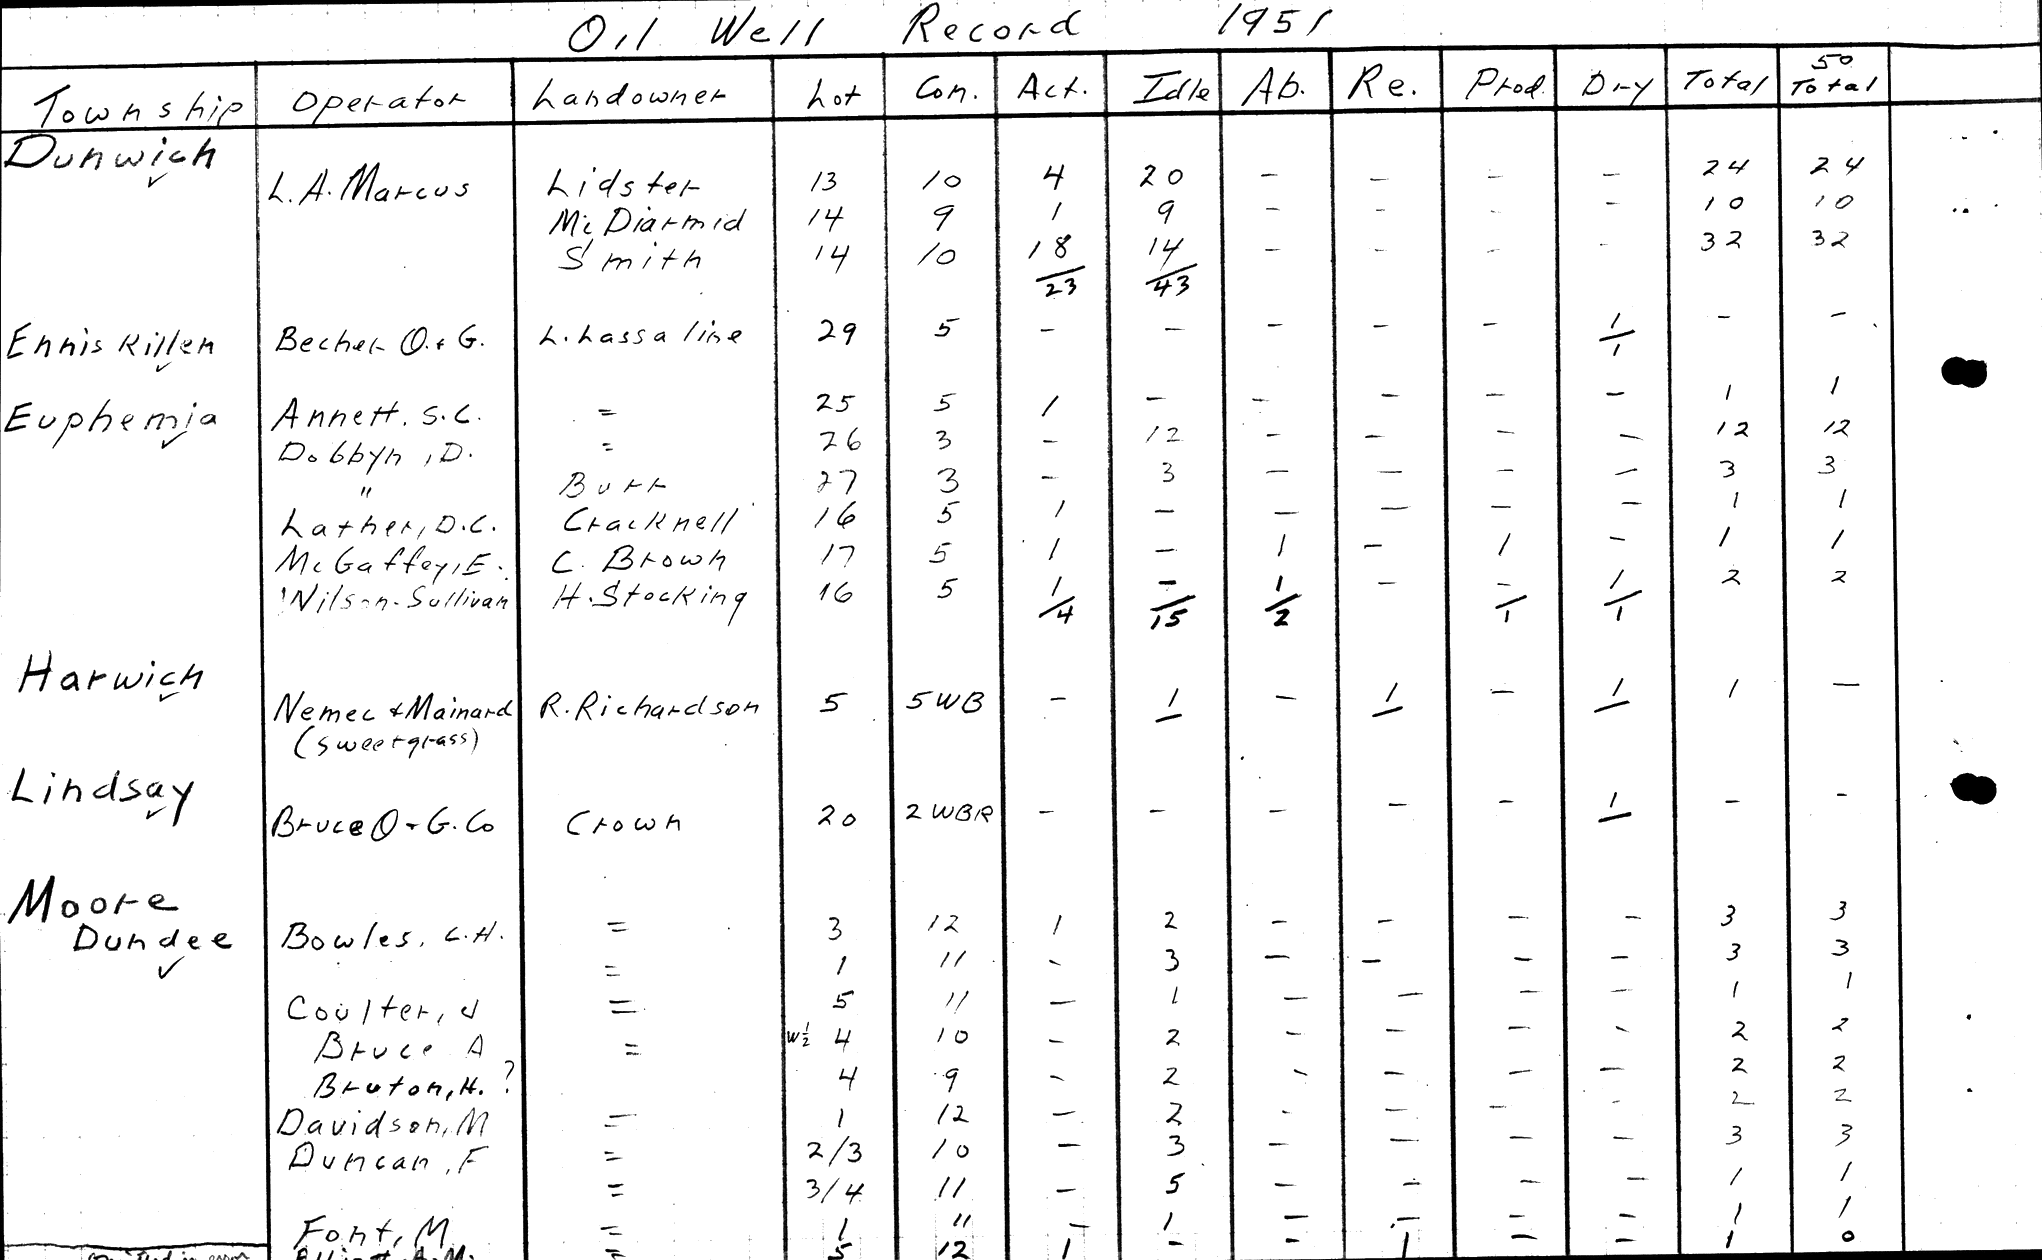 Oil Well Record 1951
Township Operator Landowner Lot Con. Act. Idle Ab. Re. Prod. Dry Total 50 Total
Dunwich
L.A. Marcus Lidster 13 10 4 20 - - - - 24 24
McDiarmid 14 9 1 9 - - - - 10 10
Smith 14 10 18 14 - - - - 32 32
23 43
Enniskillen Becher O. & G. L. Lassaline 29 5 - - - - - 1 - -
1
Euphemia Annett, S.C. = 25 5 1 - - - - - 1 1
Dobbyn, D. = 26 3 - 12 - - - - 12 12
" Burr 27 3 - 3 - - - - 3 3
Lather, D.C. Cracknell 16 5 1 - - - - - 1 1
McGaffey, E. C. Brown 17 5 1 - 1 - 1 - 1 1
Wilson-Sullivan H. Stocking 16 5 1 - 1 - - 1 2 2
4 15 2 1 1
Harwich
Nemec & Mainard R. Richardson 5 5 WB - 1 - 1 - 1 1 -
(Sweetgrass)
Lindsay
Bruce O & G. Co Crown 20 2 WBR - - - - - 1 - -
Moore
Dundee Bowles, C.H. = 3 12 1 2 - - - - 3 3
= 1 11 - 3 - - - - 3 3
Coulter, J = 5 11 - 1 - - - - 1 1
Bruce A = W½ 4 10 - 2 - - - - 2 2
Bruton, H. ? 4 9 - 2 - - - - 2 2
Davidson, M = 1 12 - 2 - - - - 2 2
Duncan, F = 2/3 10 - 3 - - - - 3 3
= 3/4 11 - 5 - - - - 1 1
Font, M = 1 11 - 1 - - - - 1 1
= 5 12 1 - - 1 - - 1 0